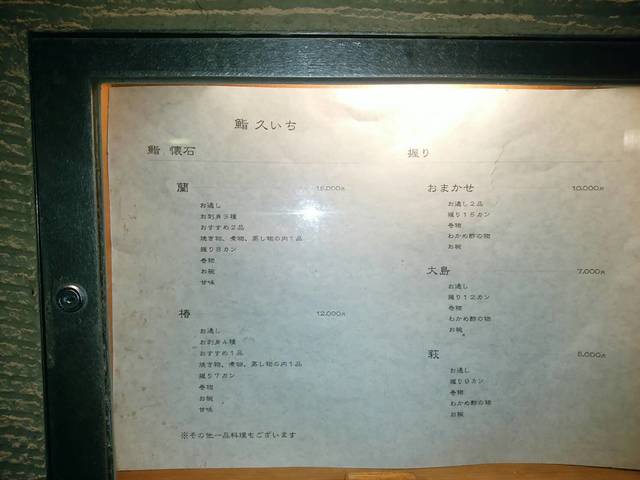 鮨 久いち
鮨 懐石
蘭 15,000円
お通し
お刺身5種
おすすめ2品
焼き物、煮物、蒸し物の内1品
握り8カン
巻物
お椀
甘味
椿 12,000円
お通し
お刺身4種
おすすめ1品
焼き物、煮物、蒸し物の内1品
握り7カン
巻物
お椀
甘味
※その他一品料理もございます
握り
おまかせ 10,000円
お通し2品
握り15カン
巻物
わかめ酢の物
お椀
大島 7,000円
お通し
握り12カン
巻物
わかめ酢の物
お椀
萩 5,000円
お通し
握り9カン
巻物
わかめ酢の物
お椀